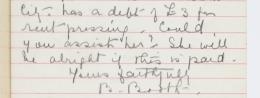 City - has a debt of £3 for
rent pressing. Could
you assist her? She will
be alright if this is paid.
Yours faithfully
B. Booth.